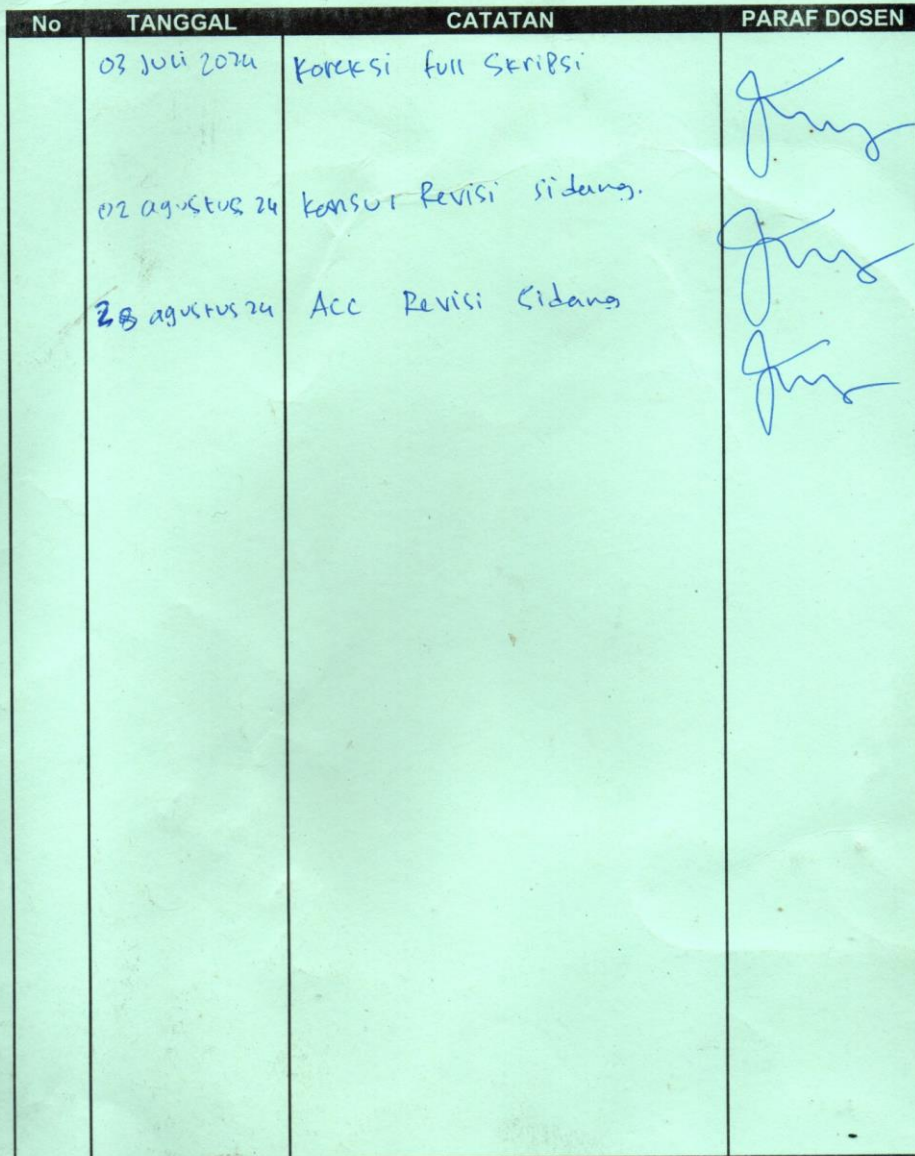 No TANGGAL CATATAN PARAF DOSEN
03 Juli 2024 Koreksi full Skripsi
02 agustus 24 Konsul Revisi sidang.
28 agustus 24 Acc Revisi Sidang